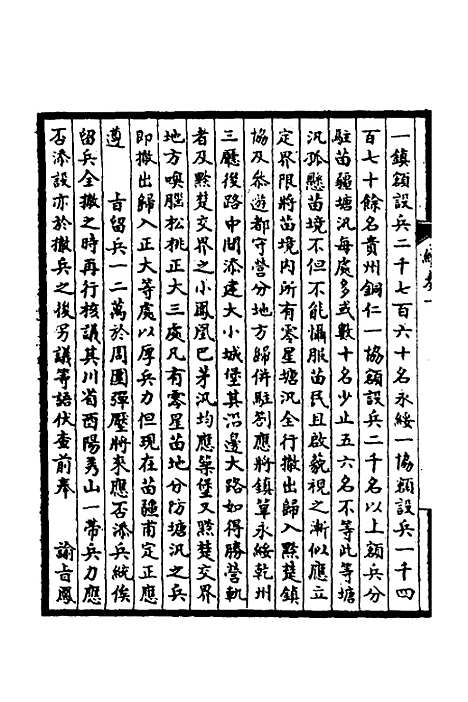 一鎮額設兵二千七百六十名永綏一協額設兵一千四
百七十餘名貴州銅仁一協額設兵二千名以上額兵分
駐苗疆塘汛每處多或數十名少止五六名不等此等塘
汛孤懸苗境不但不能懾服苗民且啟藐視之漸似應立
定界限將苗境內所有零星塘汛全行撤出歸入黔楚鎮
協及叅遊都守營分地方歸併駐劄應將鎮筸永綏乾州
三廳後路中間添建大小城堡其沿邊大路如得勝營軌
者及黔楚交界之小鳳凰巴茅汛均應築堡又黔楚交界
地方嗅腦松桃正大三處凡有零星苗地分防塘汛之兵
即撤出歸入正大等處以厚兵力但現在苗疆甫定正應
遵　　旨留兵一二萬於周圍彈壓將來應否添兵統俟
留兵全撤之時再行核議其川省酉陽秀山一帶兵力應
否添設亦於撤兵之後另議等語伏查前奉　　諭旨鳳